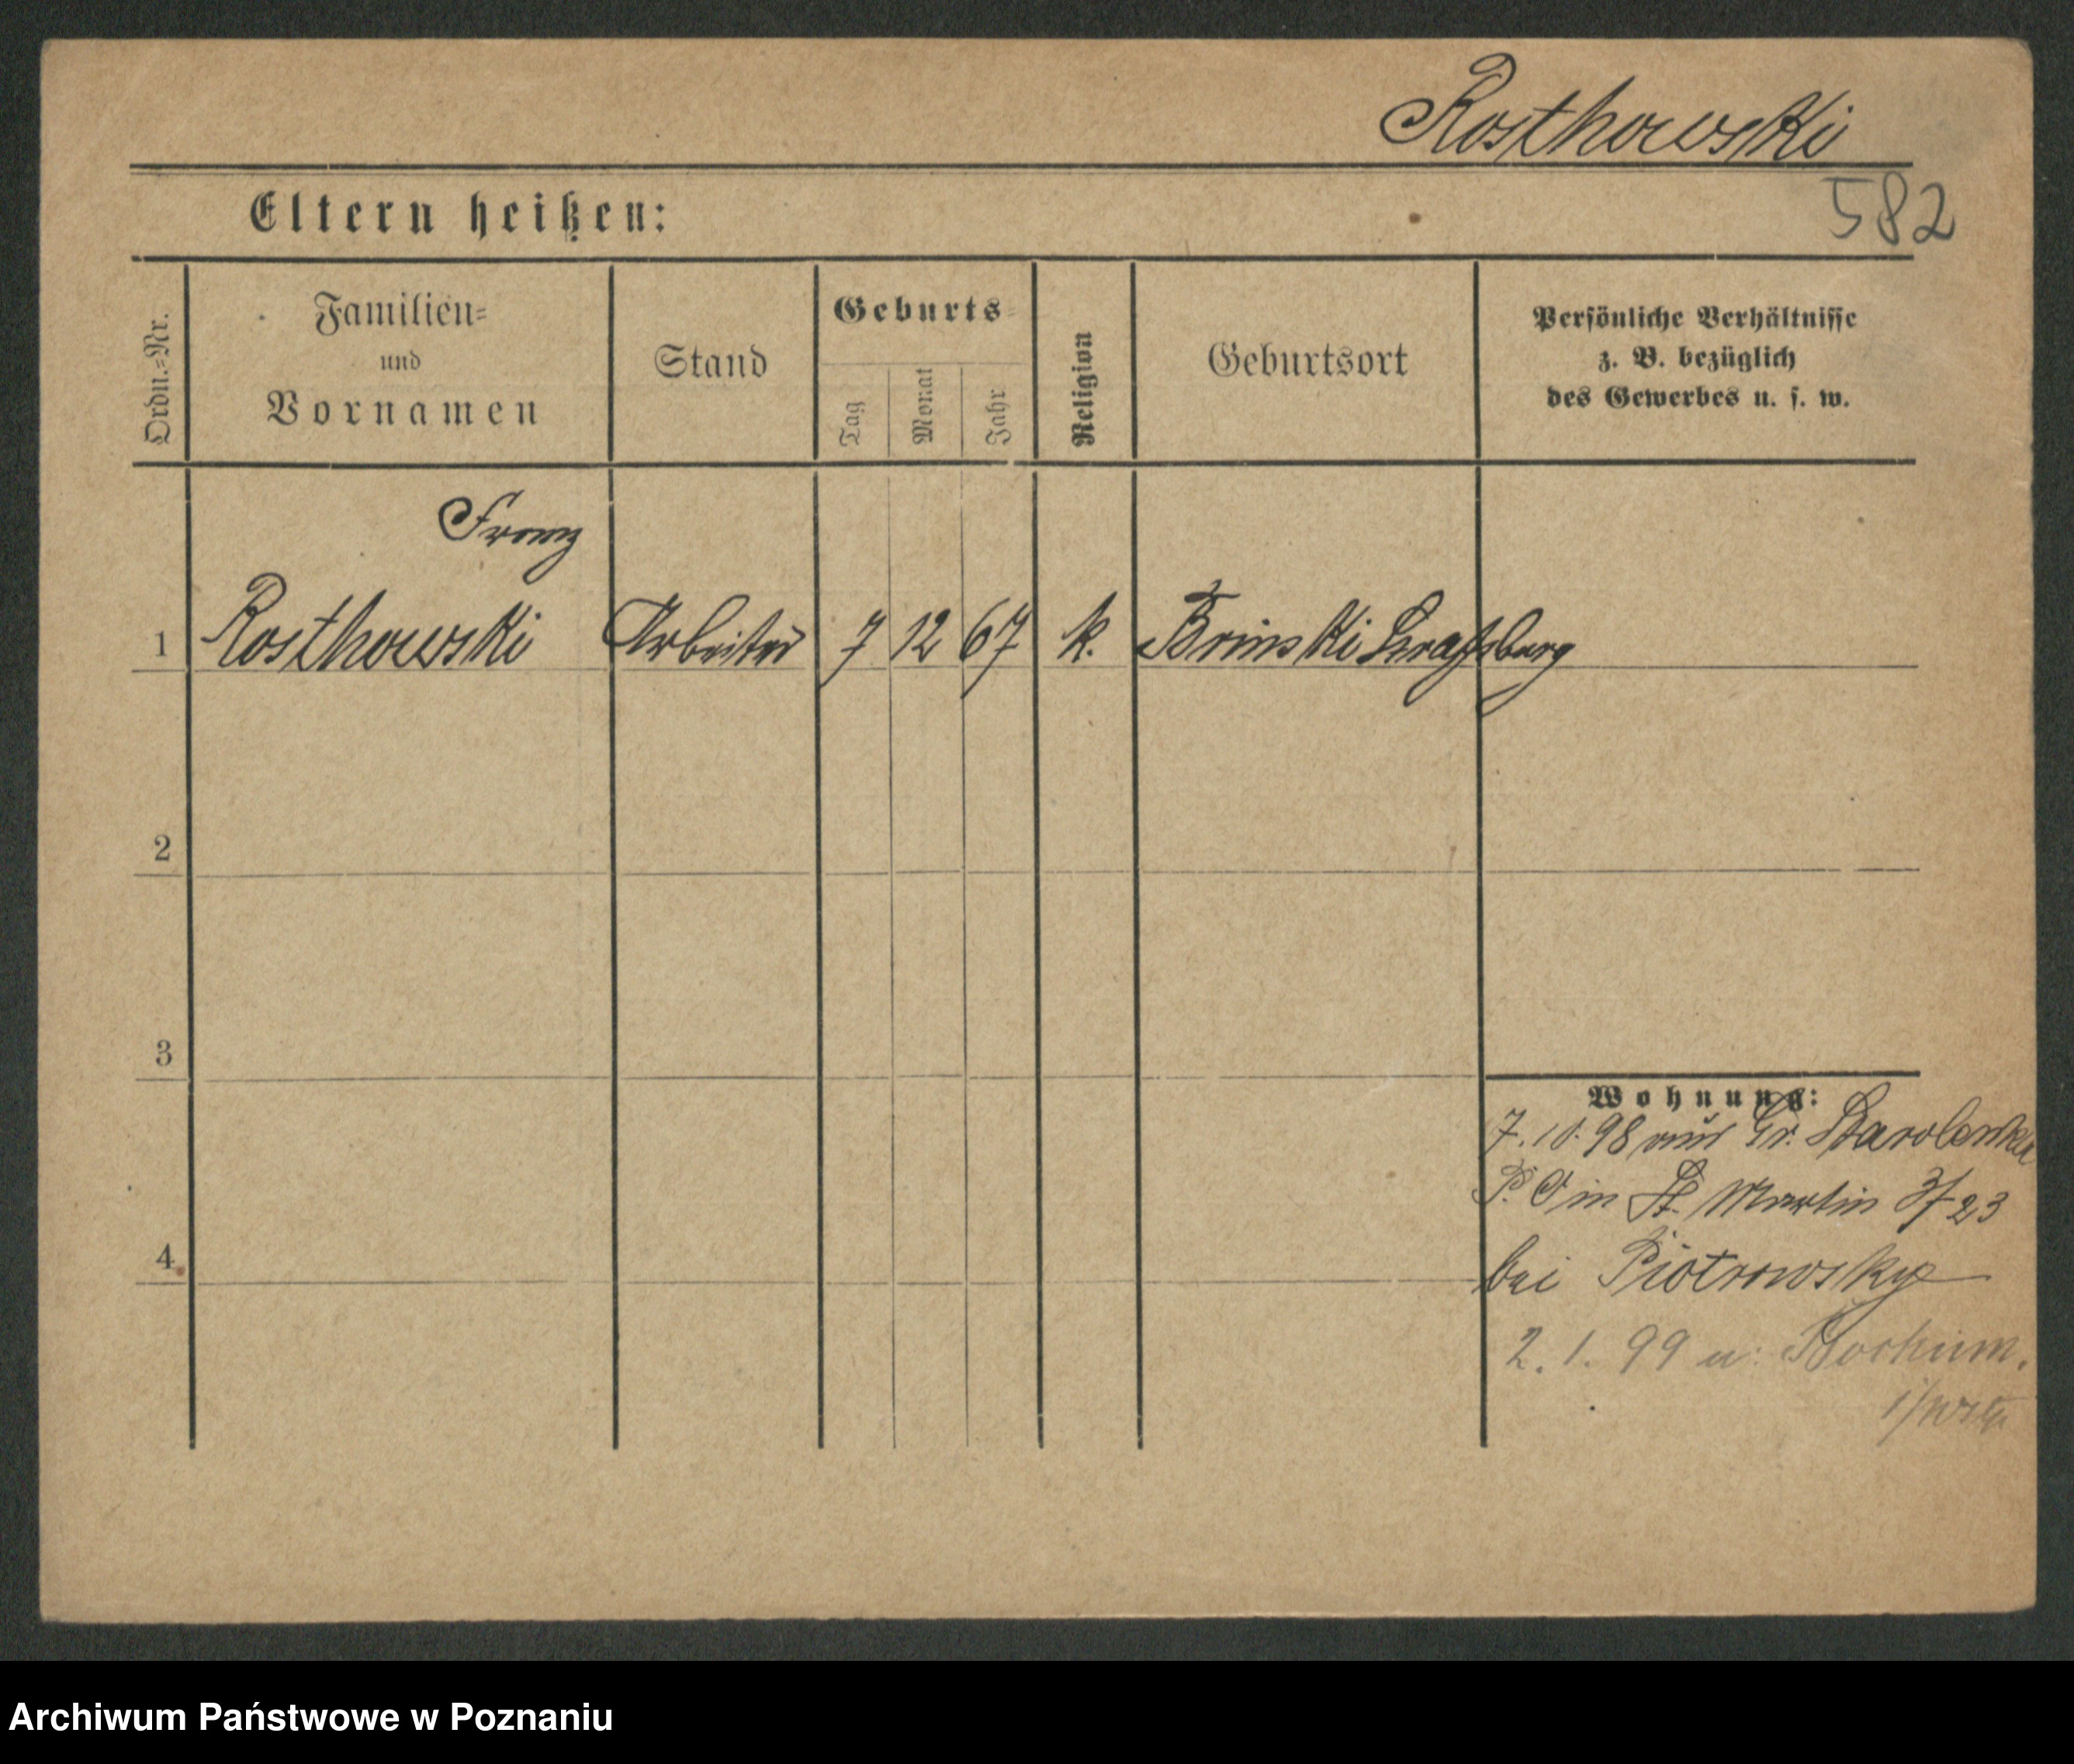 Rosthowski
582
Eltern heißen:
Ordn.=Nr.
Familien=
und
Vornamen
Stand
Geburts=
Tag
Monat
Jahr
Religion
Geburtsort
Persönliche Verhältnisse
z. B. bezüglich
des Gewerbes u. s. w.
Franz
1 Rosthowski Arbeiter 7 12 67 k. Brinski Straßburg
2
3
4
Wohnung:
7.10.98 aus Gr. Starolenka
P. O in St. Martin 3/23
bei Piotrowsky
2.1.99 u: Bochum.
i/Wstf
Archiwum Państwowe w Poznaniu